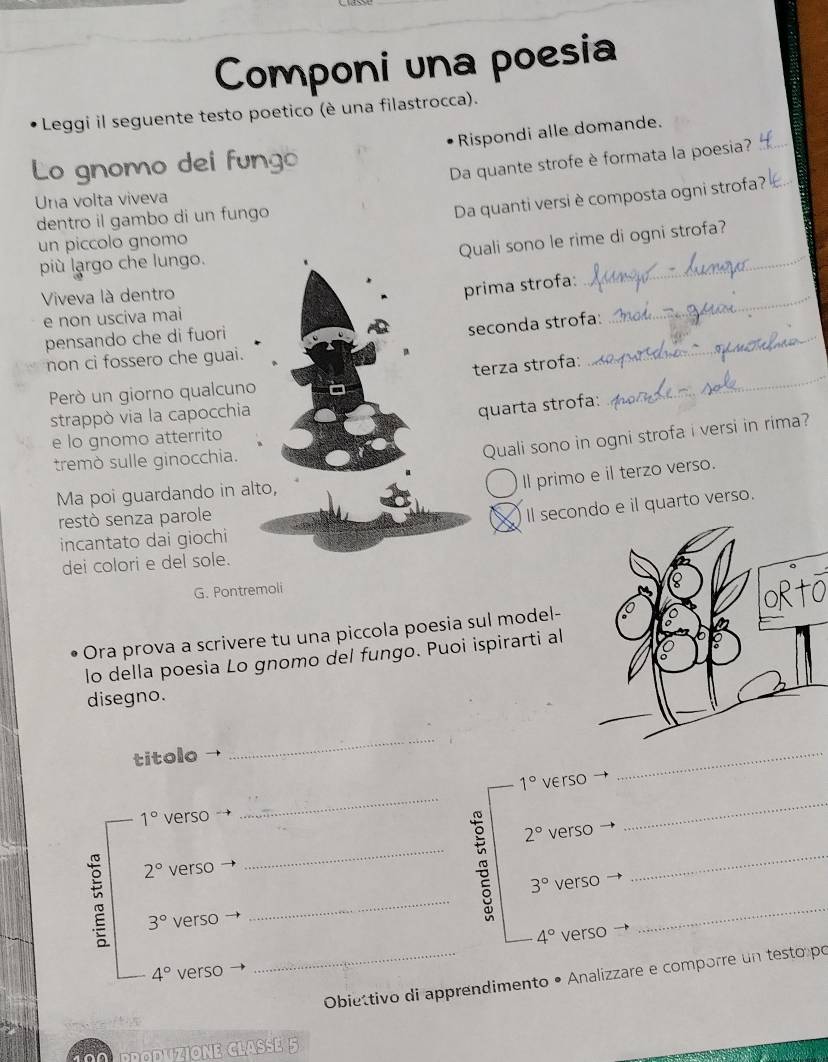 Classe
Componi una poesia
• Leggi il seguente testo poetico (è una filastrocca).
Lo gnomo del fungo
Una volta viveva
dentro il gambo di un fungo
un piccolo gnomo
più largo che lungo.
Viveva là dentro
e non usciva mai
pensando che di fuori
non ci fossero che guai.
Però un giorno qualcuno
strappò via la capocchia
e lo gnomo atterrito
tremò sulle ginocchia.
Ma poi guardando in alto,
restò senza parole
incantato dai giochi
dei colori e del sole.
G. Pontremoli
• Rispondi alle domande.
Da quante strofe è formata la poesia? 4
Da quanti versi è composta ogni strofa?
Quali sono le rime di ogni strofa?
prima strofa: fungo - lungo
seconda strofa: mai - guai
terza strofa:
quarta strofa: - sole
Quali sono in ogni strofa i versi in rima?
Il primo e il terzo verso.
Il secondo e il quarto verso.
• Ora prova a scrivere tu una piccola poesia sul model-
lo della poesia Lo gnomo del fungo. Puoi ispirarti al
disegno.
ORTO
titolo →
prima strofa
1° verso →
2° verso →
3° verso →
4° verso →
seconda strofa
1° verso →
2° verso →
3° verso →
4° verso →
Obiettivo di apprendimento • Analizzare e comporre un testo po
PRODUZIONE CLASSE 5